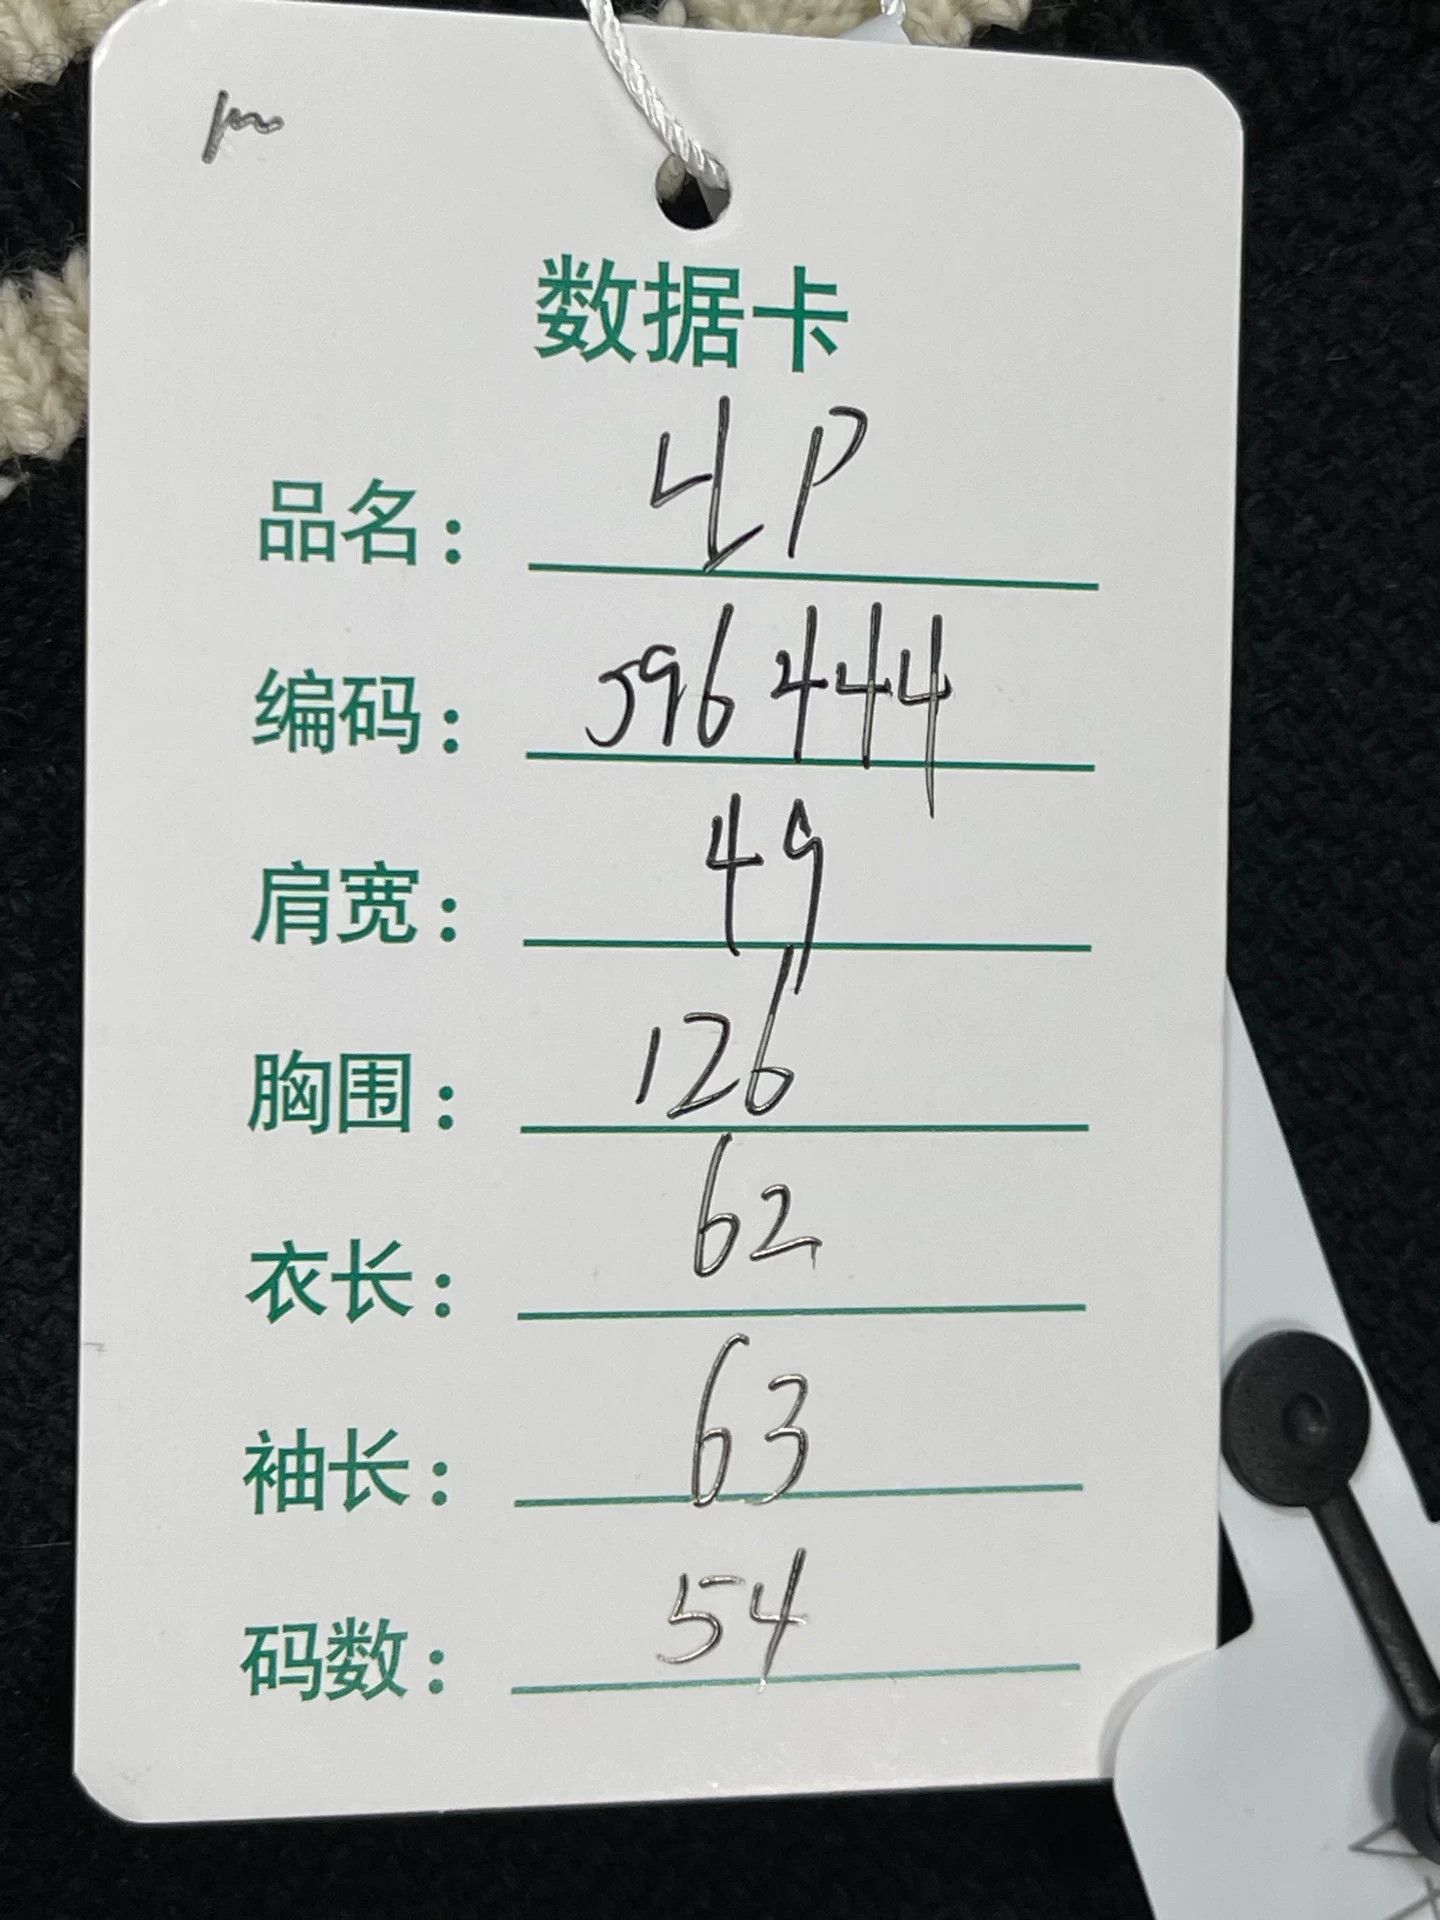 数据卡
品名：LP
编码：596444
肩宽：49
胸围：126
衣长：62
袖长：63
码数：54